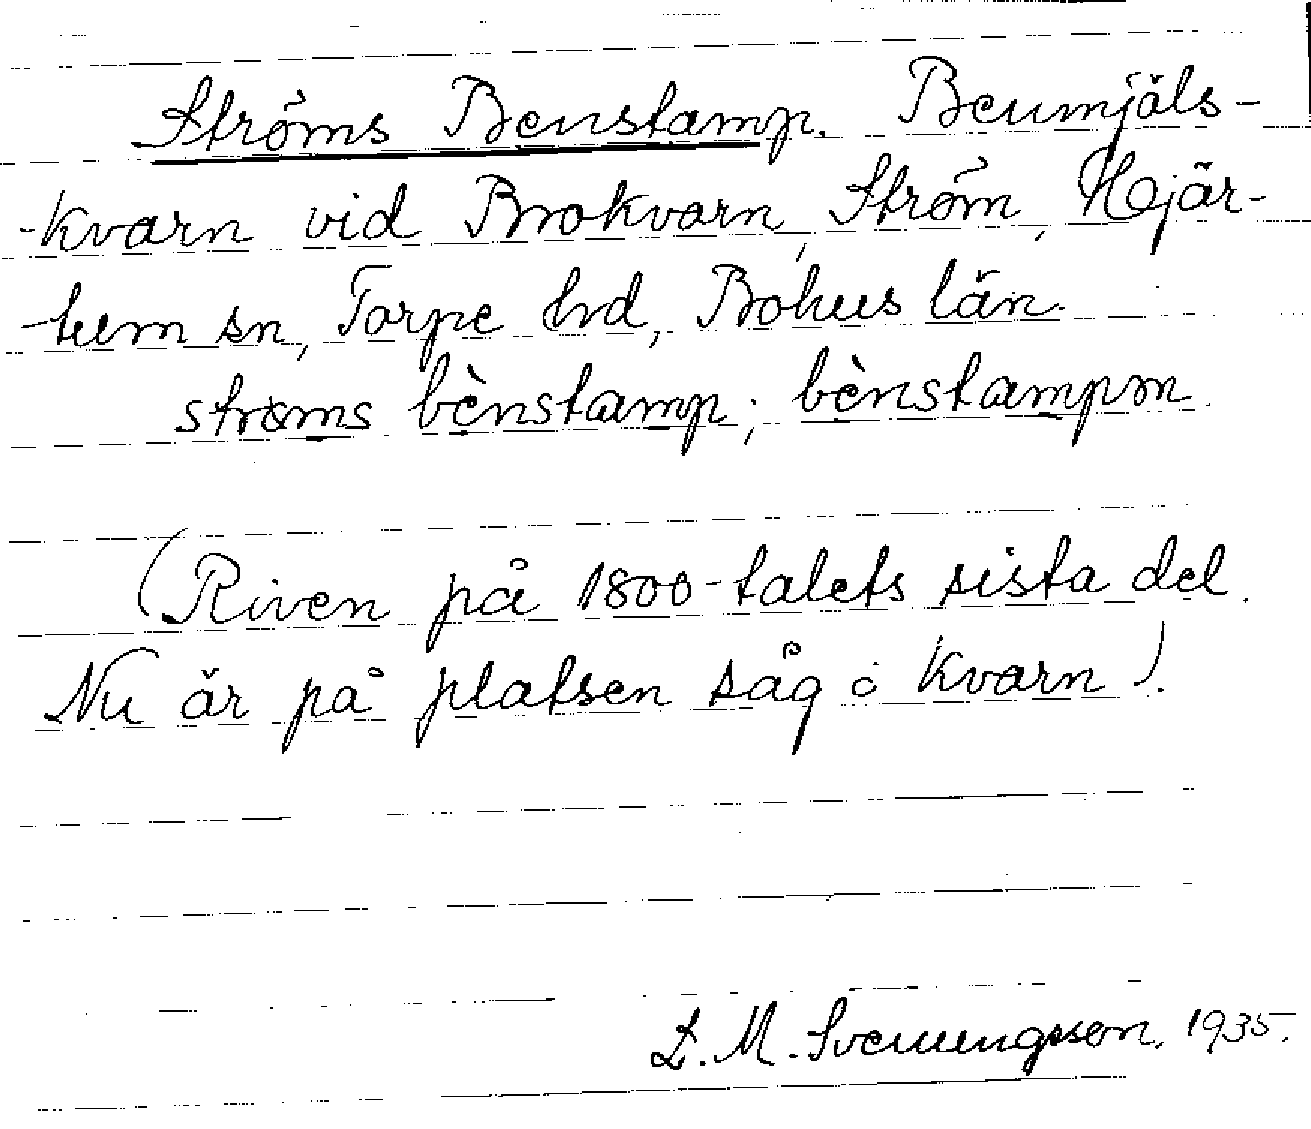 Ströms Benstamp. Benmjöls-
-kvarn vid Brokvarn, Ström, Hjär-
-tum sn, Torpe hd, Bohus län.
stroms bènstamp; bènstampən
(Riven på 1800-talets sista del.
Nu är på platsen såg o kvarn).
L. M. Svenungsson. 1935.